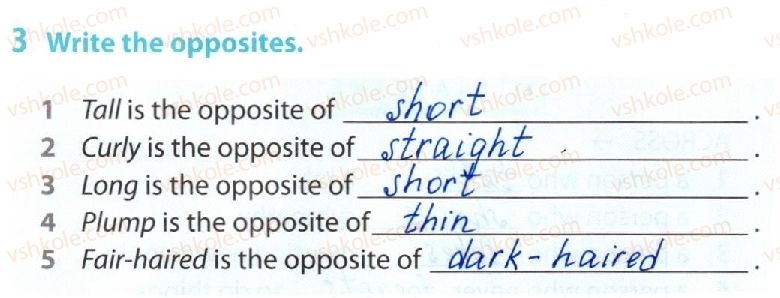 3 Write the opposites.
1 Tall is the opposite of short.
2 Curly is the opposite of straight.
3 Long is the opposite of short.
4 Plump is the opposite of thin.
5 Fair-haired is the opposite of dark-haired.